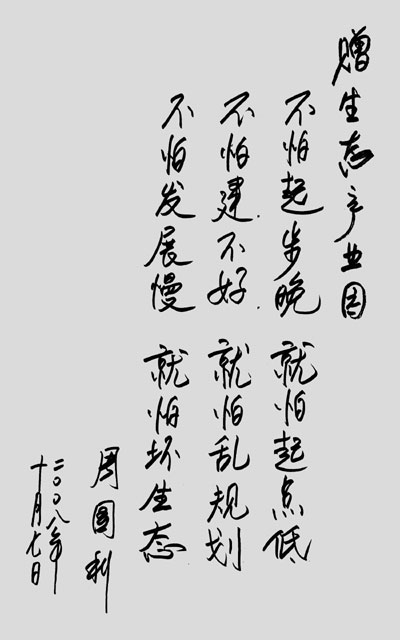 赠生态产业园
不怕起步晚 就怕起点低
不怕建不好 就怕乱规划
不怕发展慢 就怕坏生态
周国利
二〇〇八年
十月七日